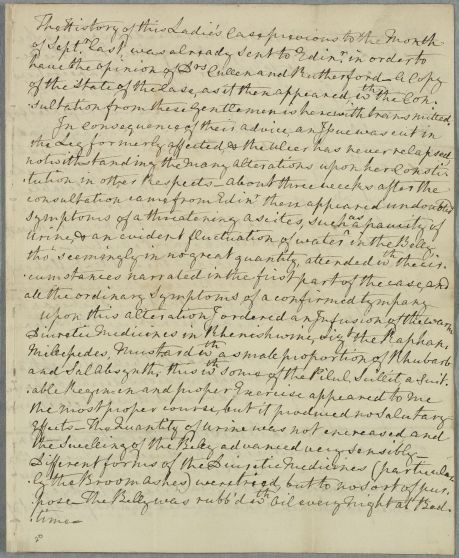 The History of this Ladie's Case previous to the Month
of Septr. last was already sent to Edinr. in order to
have the opinion of Drs Cullen and Rutherford – a Copy
of the State of the Case, as it then appeared, wth the Con-
sultation from these Gentlemen is herewith transmitted.
In consequence of their advice, an Issue was cut in
the Leg formerly affected, & the Ulcer has never relapsed,
notwithstanding the many alterations upon her Consti-
tution in other Respects – about three weeks after the
consultation came from Edinr. there appeared undoubted
symptoms of a threatening ascites, such as a paucity of
Urine, & an evident fluctuation of water in the Belly,
tho, seemingly in no great quantity, attended wth the cir-
cumstances narrated in the first part of the case, and
all the ordinary symptoms of a confirmed tympany
Upon this alteration I ordered an Infusion of the warm
Diuretic Medicines in Rhenish wine, vizt the Raphan,
Milepedes, Mustard wth a small proportion of Rhubarb
and Sal Absynth, this wth some of the Pilul Scillit, a suit-
able Regimen and proper Exercise appeared to me
the most proper course, but it produced no salutary
effects – The Quantity of Urine was not increased, and
the swelling of the Belly advanced very sensibly –
Different forms of the Diuretic Medicines (particular-
ly the Broom ashes) were tried, but to no sort of pur-
pose – The Belly was rubb'd wth oil every night at Bed
time –